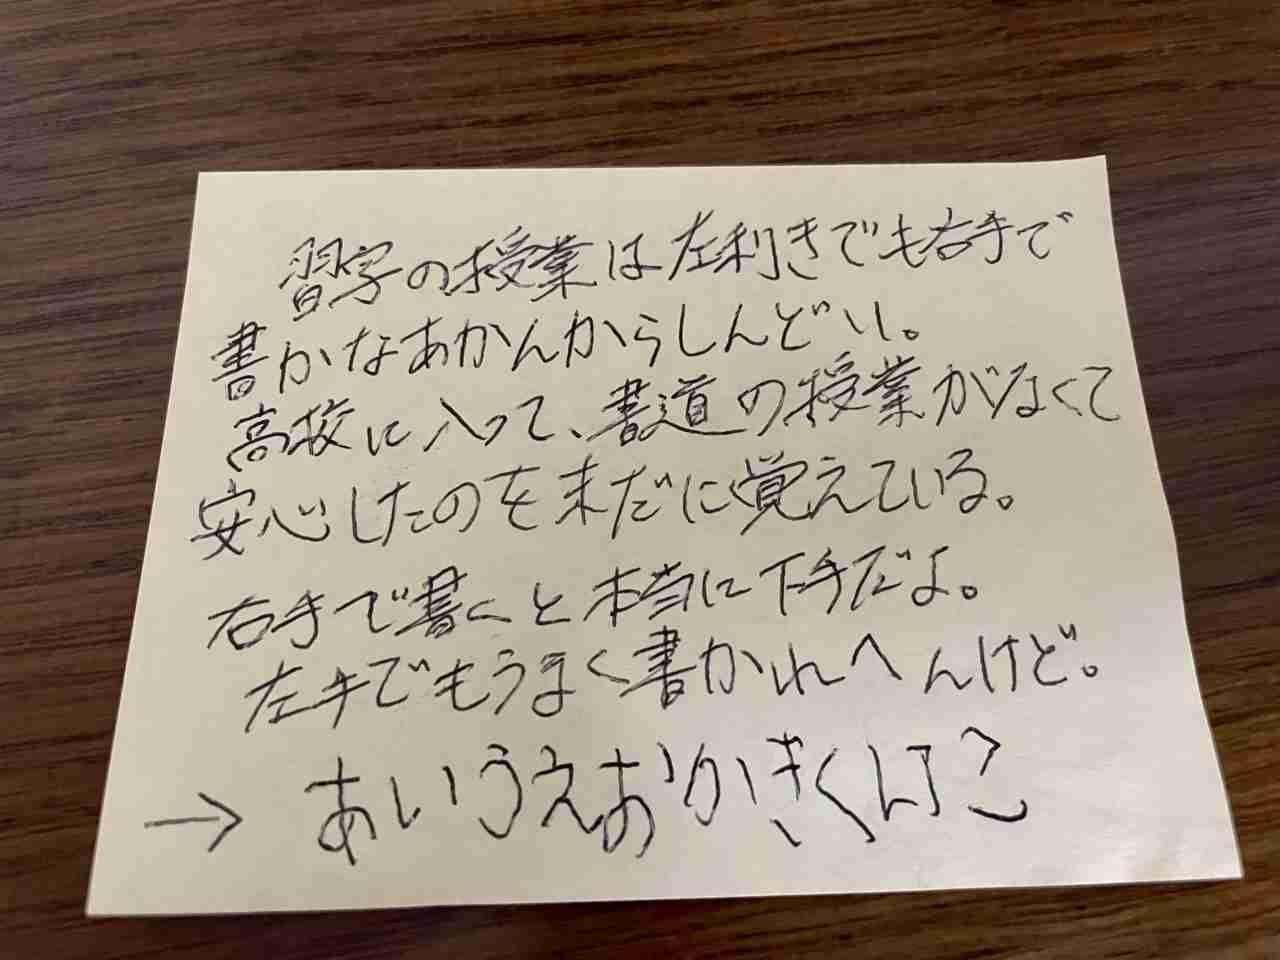 習字の授業は左利きでも右手で
書かなあかんからしんどい。
高校に入って、書道の授業がなくて
安心したのを未だに覚えている。
右手で書くと本当に下手だよ。
左手でもうまく書かれへんけど。
→ あいうえおかきくけこ